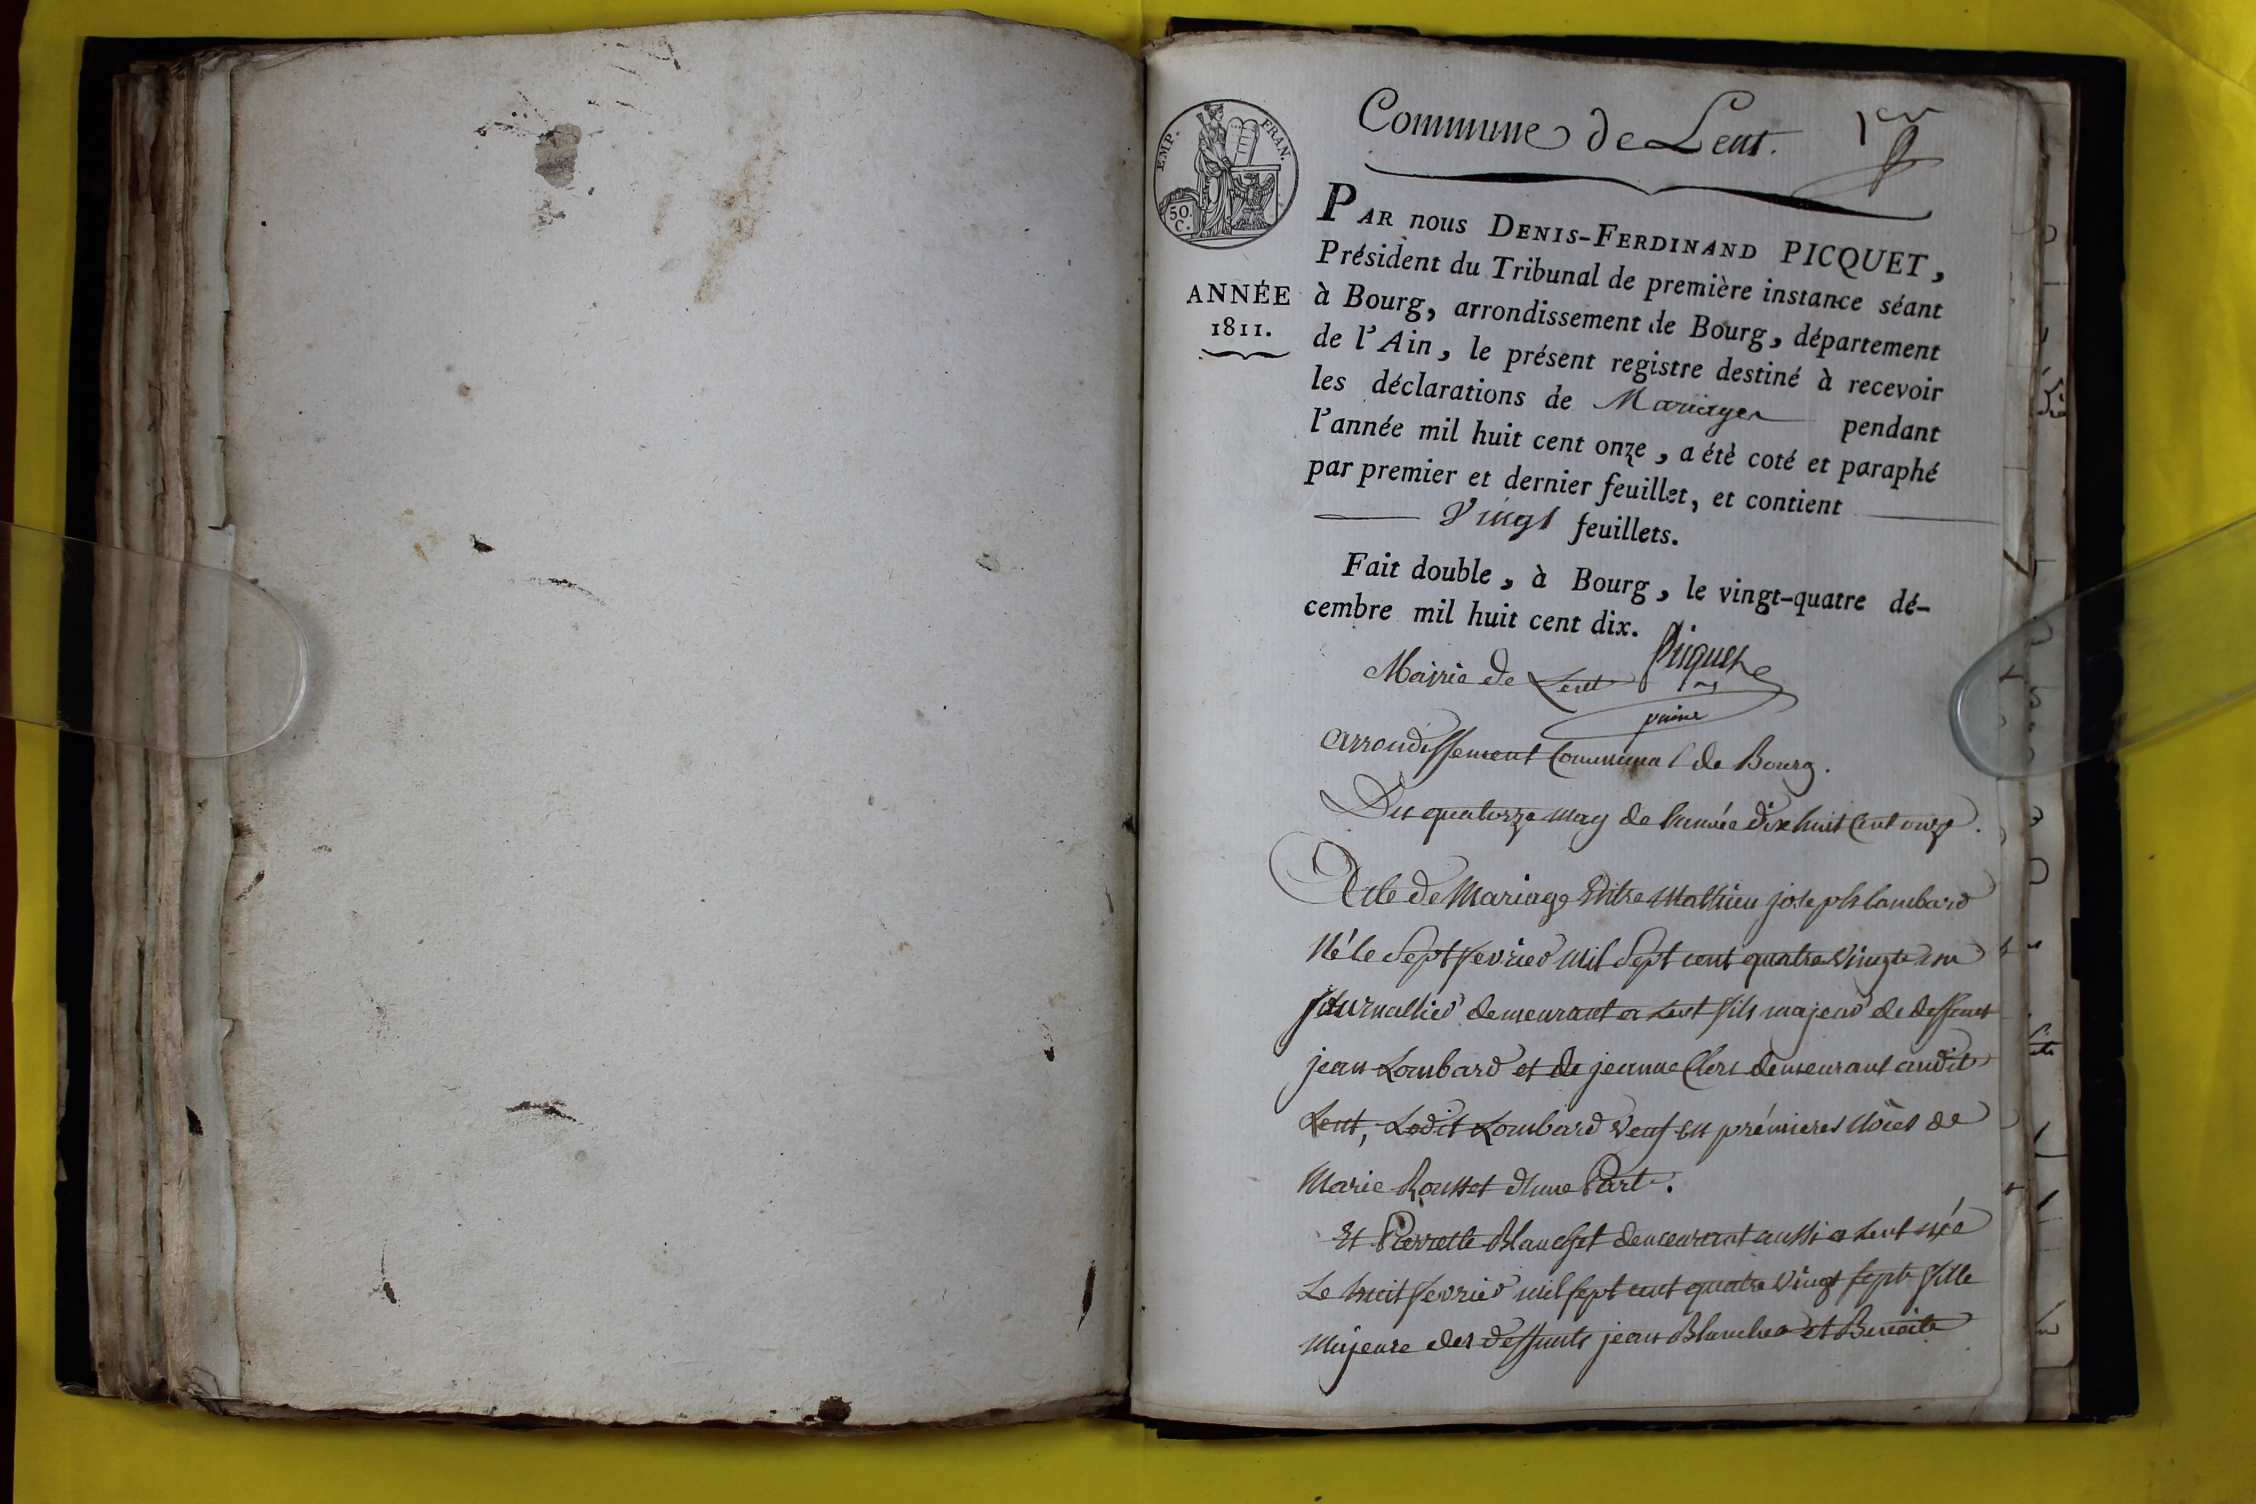 Commune de Lent. 1er
EMP. FRAN.
50.
C.
ANNÉE
1811.
PAR nous DENIS-FERDINAND PICQUET,
Président du Tribunal de première instance séant
à Bourg, arrondissement de Bourg, département
de l'Ain, le présent registre destiné à recevoir
les déclarations de Mariages pendant
l'année mil huit cent onze, a été coté et paraphé
par premier et dernier feuillet, et contient
Vingt feuillets.
Fait double, à Bourg, le vingt-quatre dé-
cembre mil huit cent dix.
Picquet
Mairie de Lent
arrondissement Communal de Bourg.
Du quatorze may de l'année dix huit Cent onze.
Acte de Mariage Entre Mathieu joseph lombard
Né le Sept fevrier mil Sept cent quatre Vingts un
journallier demeurant a Lent fils majeur de deffunt
jean Lombard et de jeanne Clerc demeurant audit
Lent, Ledit Lombard veuf en prémieres nôces de
Marie Rousset d'une Part.
Et Pierrette Blanchet demeurant aussi a Lent née
Le huit fevrier mil sept cent quatre Vingt sept fille
majeure des deffunts jean Blanchet et Benoite